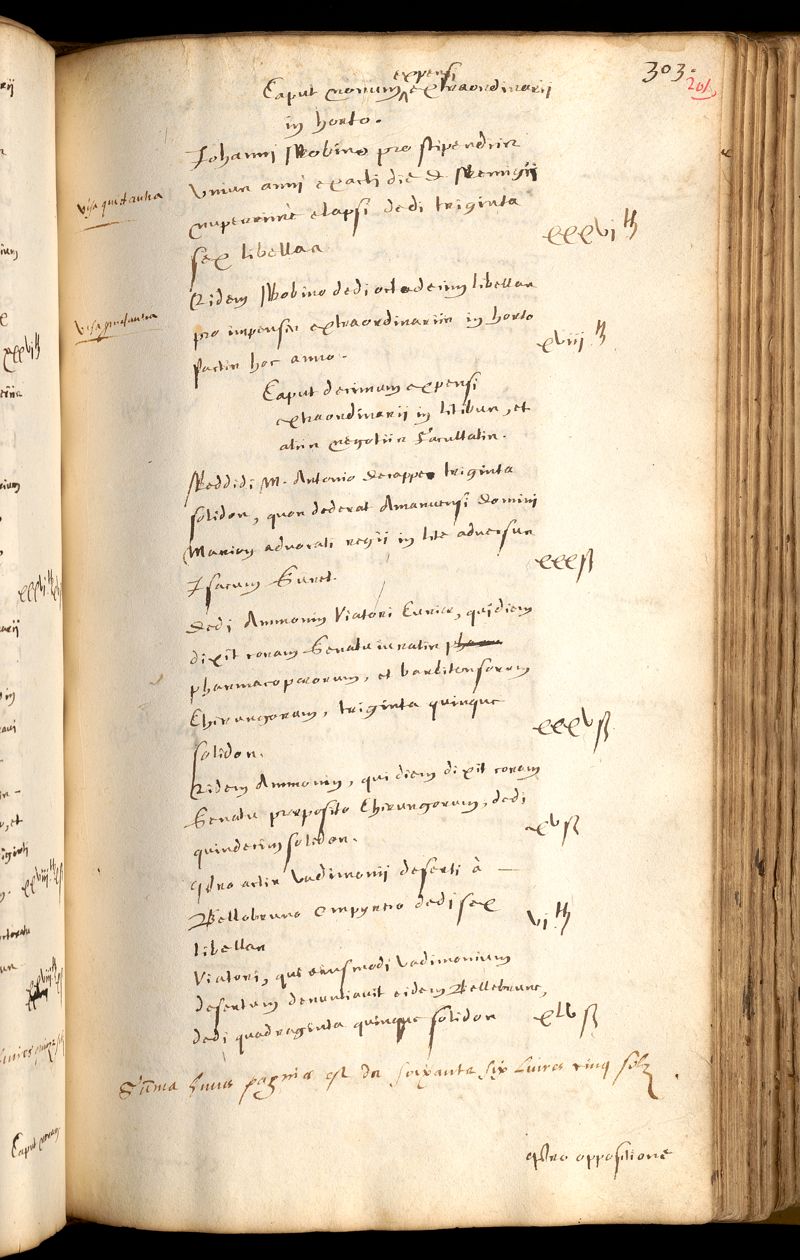 303.
201
Caput nonum expensi extraordinarii
in horto.
Johanni Robino pro stipendiis
unius anni exacti die S. Remigii
visa quictantia
nuperrimè elapsi dedi triginta
sex libellas
xxxvi ₶
Eidem Robino dedi octodecim libellas
visa quictantia
pro impensis extraordinariis in horto
xviii ₶
factis hoc anno.
Caput decimum expensi
extraordinarii in litibus, et
aliis negotiis Facultatis.
Reddidi M. Antonio Decappes triginta
solidos, quos dederat Amanuensi Domini
Marion advocati regii in lite adversus
xxx ß
Isacum
Dedi Ammonio Viatori Curiæ, qui diem
dixit coram Senatu iuratis
pharmacopœorum, et barbitonsorum
Chirurgorum, triginta quinque
xxxv ß
solidos.
Eidem Ammonio, qui diem dixit coram
Senatu præposito Chirurgorum, dedi
xv ß
quindecim solidos.
Pro actis vadimonii deserti à
Bellebruno Empyrico dedi sex
vi ₶
libellas
Viatori, qui eiusmodi vadimonium
desertum denuntiavit eidem Bellebruno,
dedi quadraginta quinque solidos
xlv ß
Summa huius paginæ est de soixante six livres cinq solz
Pro oppositione
xxxvi ₶
Caput